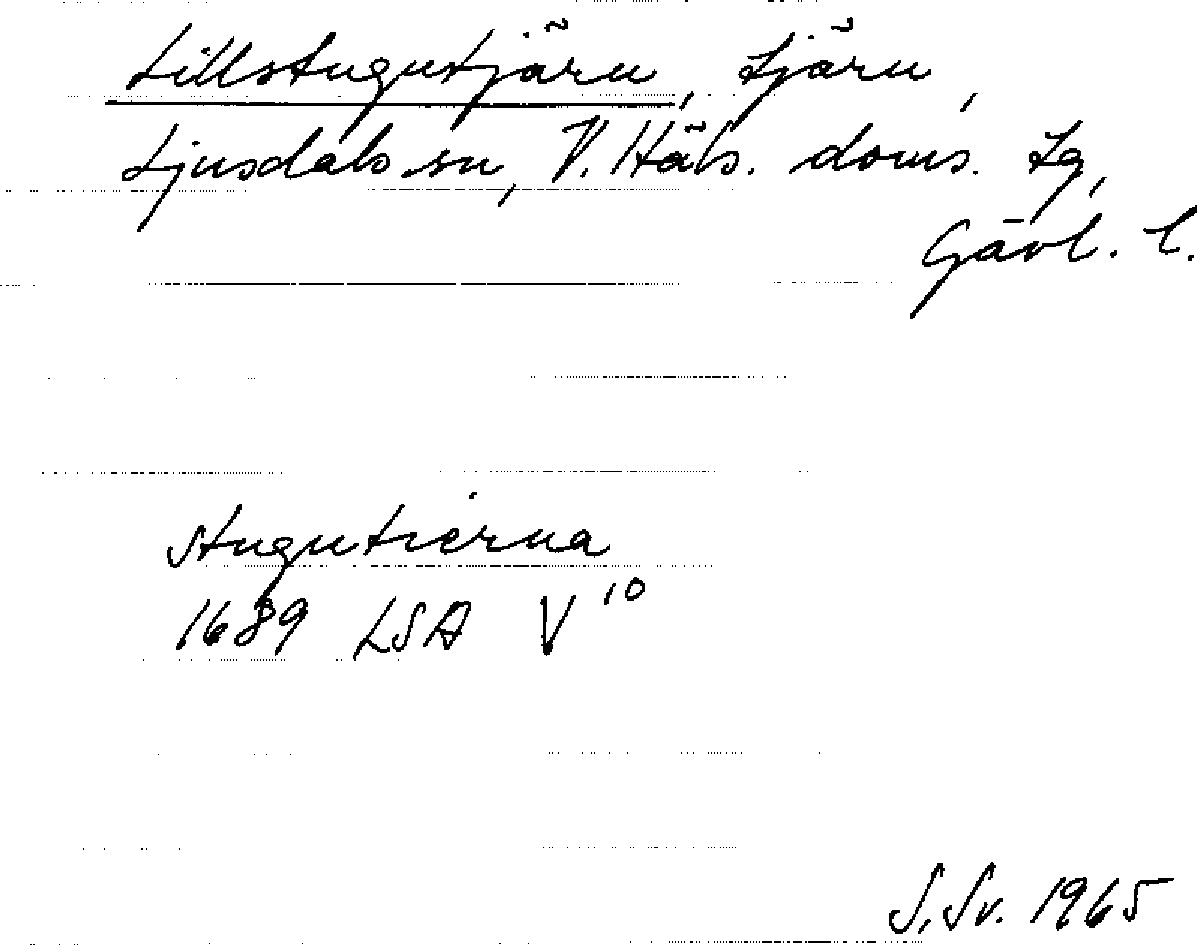 Lillstugutjärn, tjärn,
Ljusdals sn, V. Häls. doms. tg,
Gävl. l.
Stugutierna
1689 LSA V 10
S. Sv. 1965